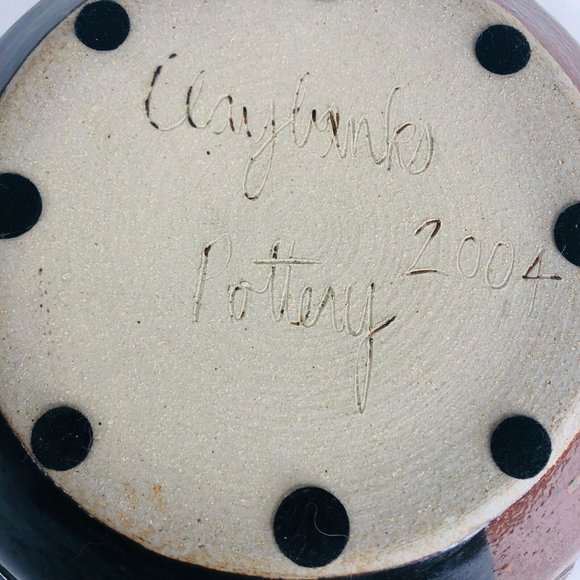 Claybanks
Pottery 2004